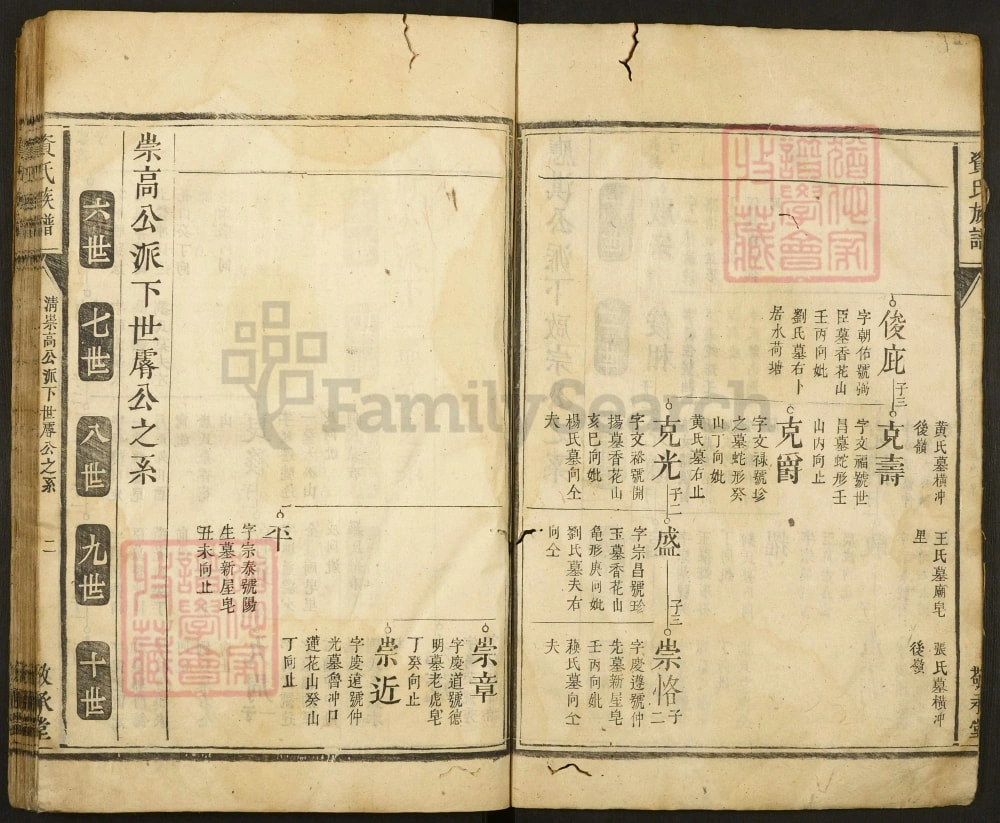 資氏族譜
敬承堂
黄氏墓橫冲
後嶺
王氏墓廟皂
里
張氏墓橫冲
後嶺
俊庇
子三
字朝佑號弼
臣墓香花山
壬丙向妣
劉氏墓右卜
居水荷塘
克壽
字文福號世
昌墓蛇形壬
山内向止
克爵
字文禄號珍
之墓蛇形癸
山丁向妣
黄氏墓右止
克光
子二
字文裕號開
揚墓香花山
亥巳向妣
楊氏墓向仝
夫
盛
子三
字宗昌號珍
玉墓香花山
亀形庚向妣
劉氏墓夫右
向仝
崇恪
子二
字慶遵號仲
先墓新屋皂
壬丙向妣
賴氏墓向仝
夫
崇章
字慶道號德
明墓老虎皂
丁癸向止
崇近
字慶遠號仲
光墓魯冲口
蓮花山癸山
丁向止
平
字宗泰號陽
生墓新屋皂
丑未向止
崇高公派下世𠪱公之系
六世
七世
八世
九世
十世
資氏族譜
清崇高公派下世𠪱公之系
二
敬承堂
FamilySearch